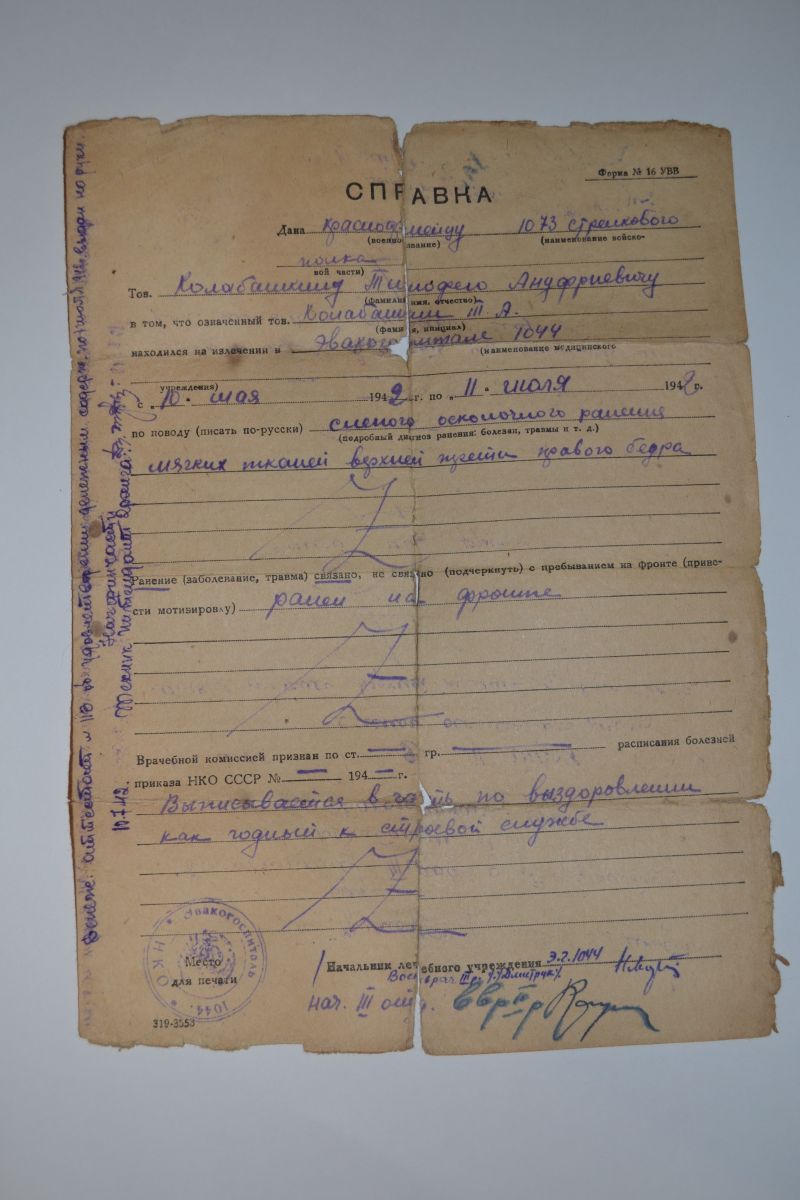 Форма № 16 УВВ
СПРАВКА
Дана красноармейцу 1073 стрелкового
(военное звание) (наименование войско-
полка
вой части)
Тов. Колабашкину Тимофею Ануфриевичу
(фамилия, имя, отчество)
в том, что означенный тов. Колабашкин Т. А.
(фамилия, инициал)
находился на излечении в Эвакогоспитале 1044
(наименование медицинского
учреждения)
с „10“ мая 1942 г. по „11“ июля 1942 г.
по поводу (писать по-русски) слепого осколочного ранения
(подробный диагноз ранения: болезни, травмы и т. д.)
мягких тканей верхней трети правого бедра
Ранение (заболевание, травма) связано, не связано (подчеркнуть) с пребыванием на фронте (приве-
сти мотивировку) ранен на фронте
Врачебной комиссией признан по ст. — гр. — расписания болезней
приказа НКО СССР № — 194 — г.
Выписывается в часть по выздоровлении
как годный к строевой службе
Эвакогоспиталь
НКО
1044
Место
для печати
Начальник лечебного учреждения Э.Г. 1044
Военврач
Нач. III отд.
319-3553
Денеж. аттестат
удовлетворении денежным содерж. по
выдан на руки.
Начфинчасти
Техник интендант
10.7.42.